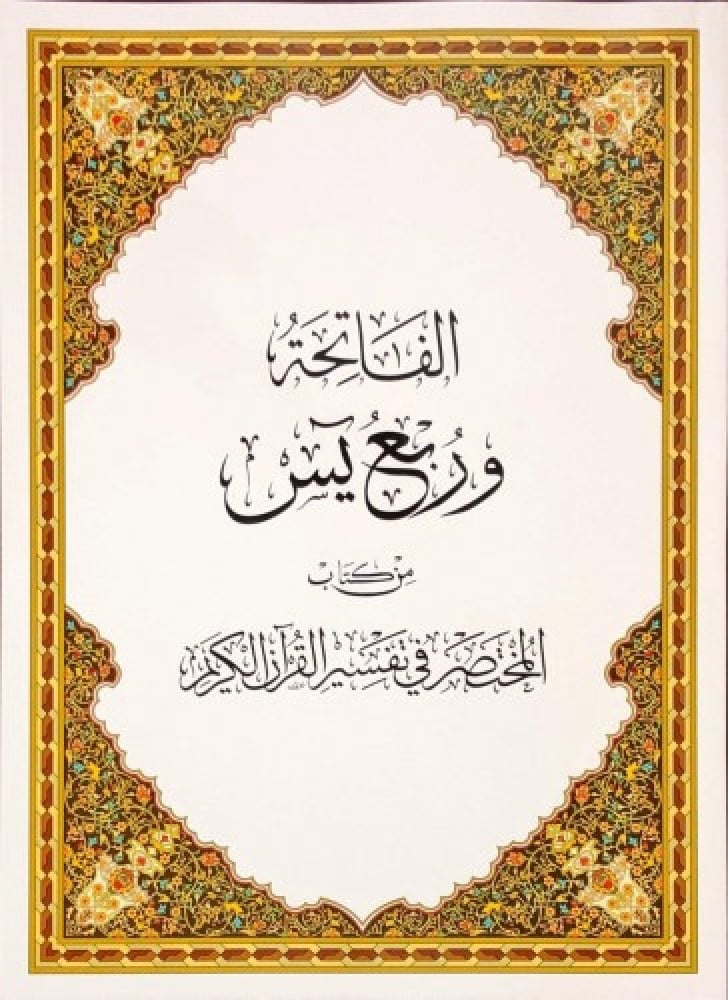 الفَاتِحَةُ
وَرُبعُ يٓسٓ
مِن كِتَاب
المُخْتَصَر في تَفْسِير القُرآن الكَرِيم